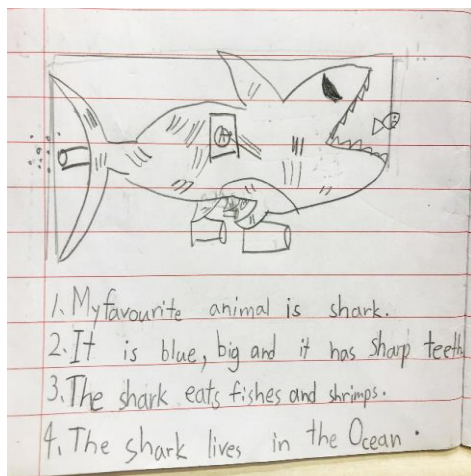 1. My favourite animal is shark.
2. It is blue, big and it has sharp teeth
3. The shark eats fishes and shrimps.
4. The shark lives in the Ocean.